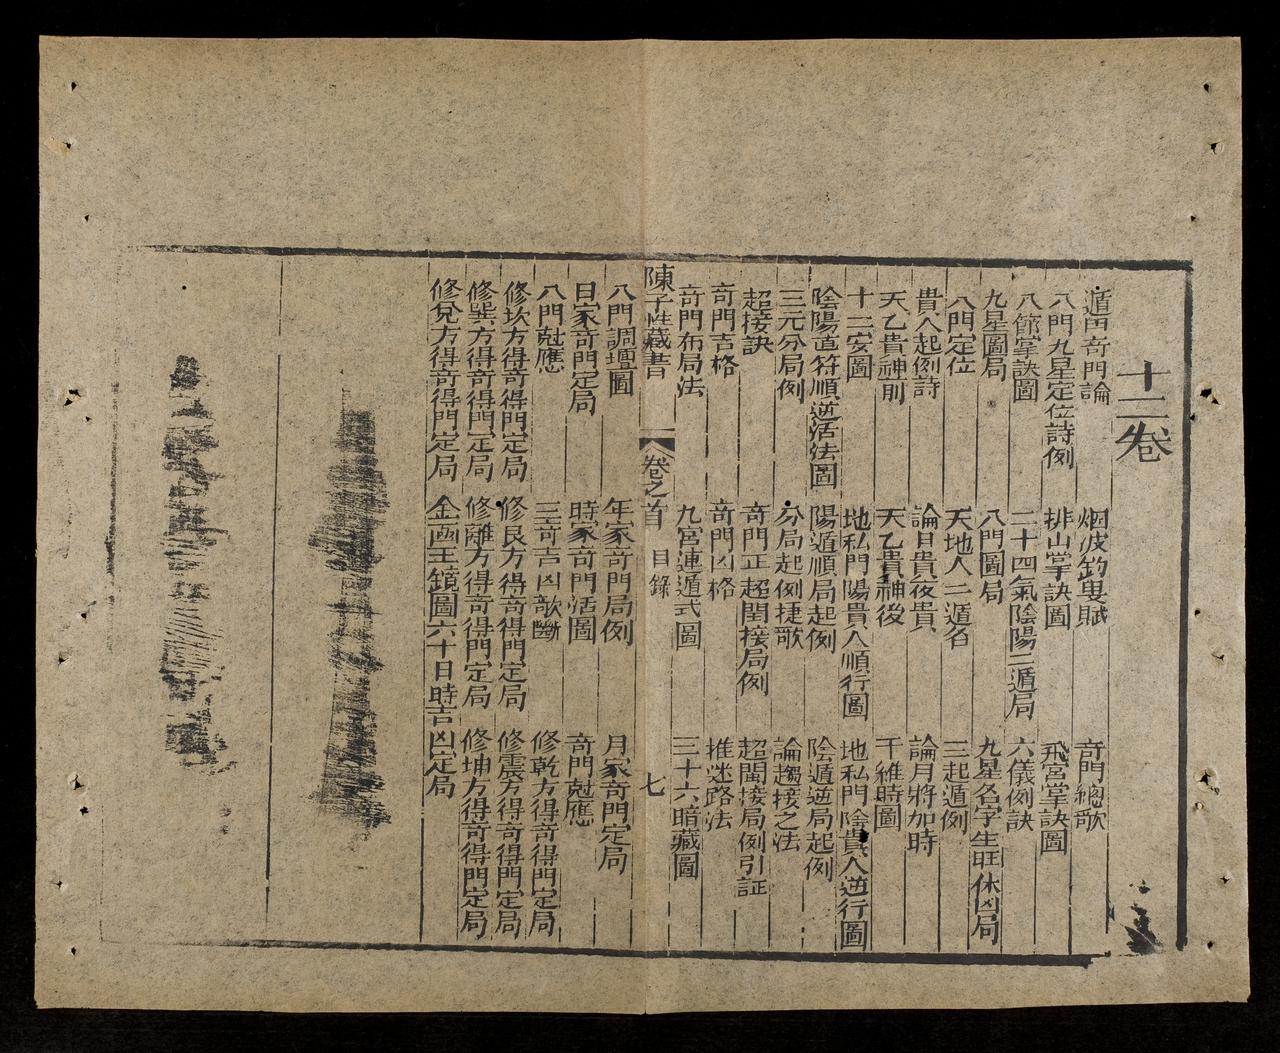 十二卷
遁甲奇門論
烟波釣叟賦
奇門總歌
八門九星定位詩例
排山掌訣圖
飛宮掌訣圖
八節掌訣圖
二十四氣陰陽二遁局
六儀例訣
九星圖局
八門圖局
九星名字生旺休凶局
八門定位
天地人二遁名
三起遁例
貴人起例詩
論日貴夜貴
論月將加時
天乙貴神前
天乙貴神後
千維時圖
十二安圖
地私門陽貴人順行圖
地私門陰貴人逆行圖
陰陽直符順逆活法圖
陽遁順局起例
陰遁逆局起例
三元分局例
分局起例捷歌
論趨接之法
超接訣
奇門正超閏接局例
超閏接局例引証
奇門吉格
奇門凶格
推迷路法
奇門布局法
九宮連遁式圖
三十六暗藏圖
陳子性藏書
卷之首
目錄
七
八門調壇圖
年家奇門局例
月家奇門定局
日家奇門定局
時家奇門活圖
奇門尅應
八門尅應
三奇吉凶歌斷
修乾方得奇得門定局
修坎方得奇得門定局
修艮方得奇得門定局
修震方得奇得門定局
修巽方得奇得門定局
修離方得奇得門定局
修坤方得奇得門定局
修兌方得奇得門定局
金函玉鏡圖六十日時吉凶定局